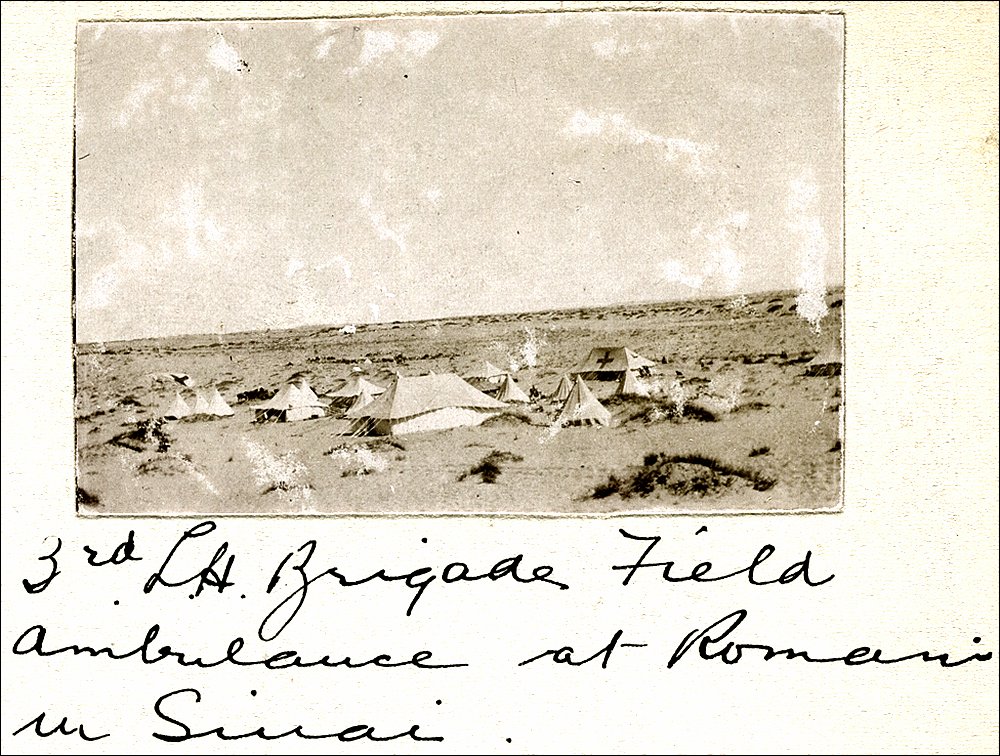 3rd L.H. Brigade Field
ambulance at Romani
in Sinai.